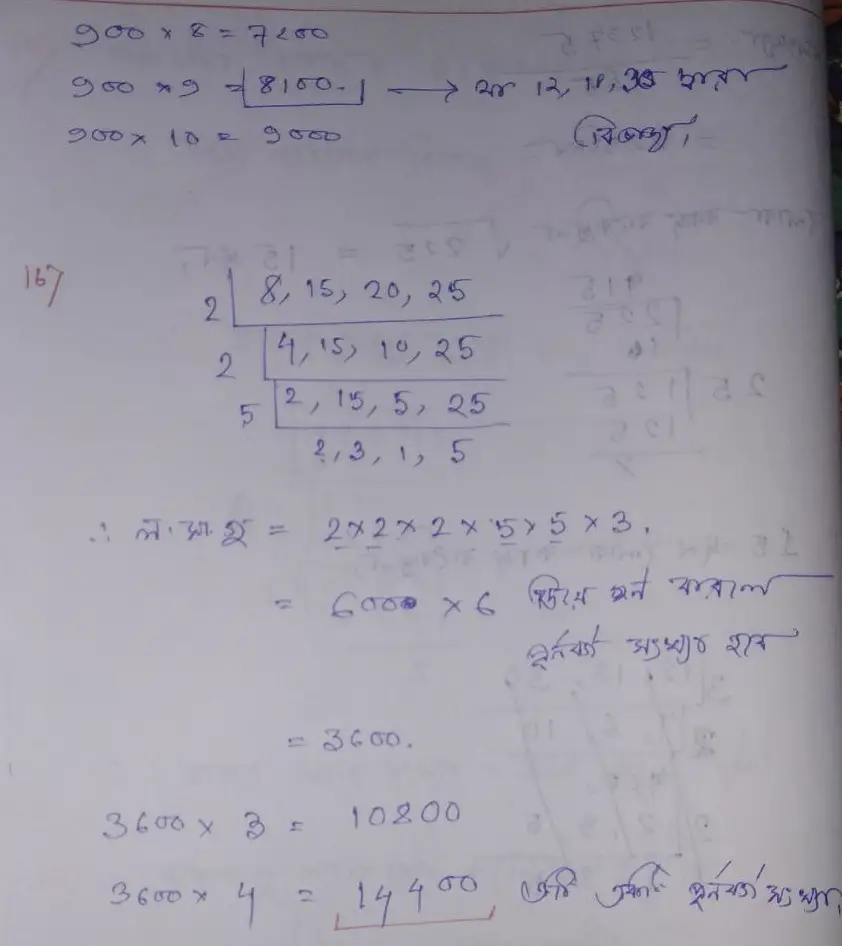 900 × 8 = 7200
900 × 9 = 8100. → যা 12, 18, 30 দ্বারা
900 × 10 = 9000 বিভাজ্য।
167
2 | 8, 15, 20, 25
2 | 4, 15, 10, 25
5 | 2, 15, 5, 25
2, 3, 1, 5
∴ ল.সা.গু = 2 × 2 × 2 × 5 × 5 × 3.
= 600 × 6 দিয়ে গুন করলে
পূর্নবর্গ সংখ্যা হবে
= 3600.
3600 × 3 = 10800
3600 × 4 = 14400 এটি একটি পূর্নবর্গ সংখ্যা।